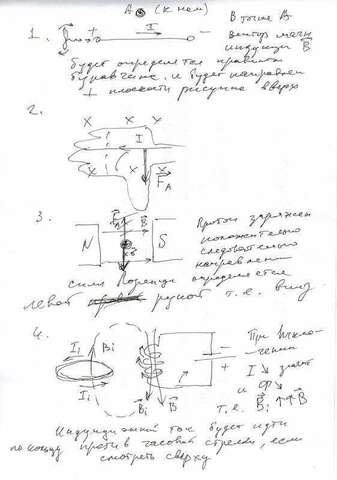 А (к нам)
1. + I −
В точке А
вектор магн
индукции B
будет определятся правилом
буравчика и будет направлен
⊥ плоскости рисунка вверх
2. X X X
I
X X
F_A
3. B
N S
Протон заряжен
положительно
следовательно
направление
силы Лоренца определяется
левой рукой т.е. вниз
4. I_i B_i
I_i B_i B
− +
При выклю-
чении
I ↘
и Ф ↘
т.е. B_i ↑↑ B
Индукционный ток будет идти
по кольцу против часовой стрелки, если
смотреть сверху